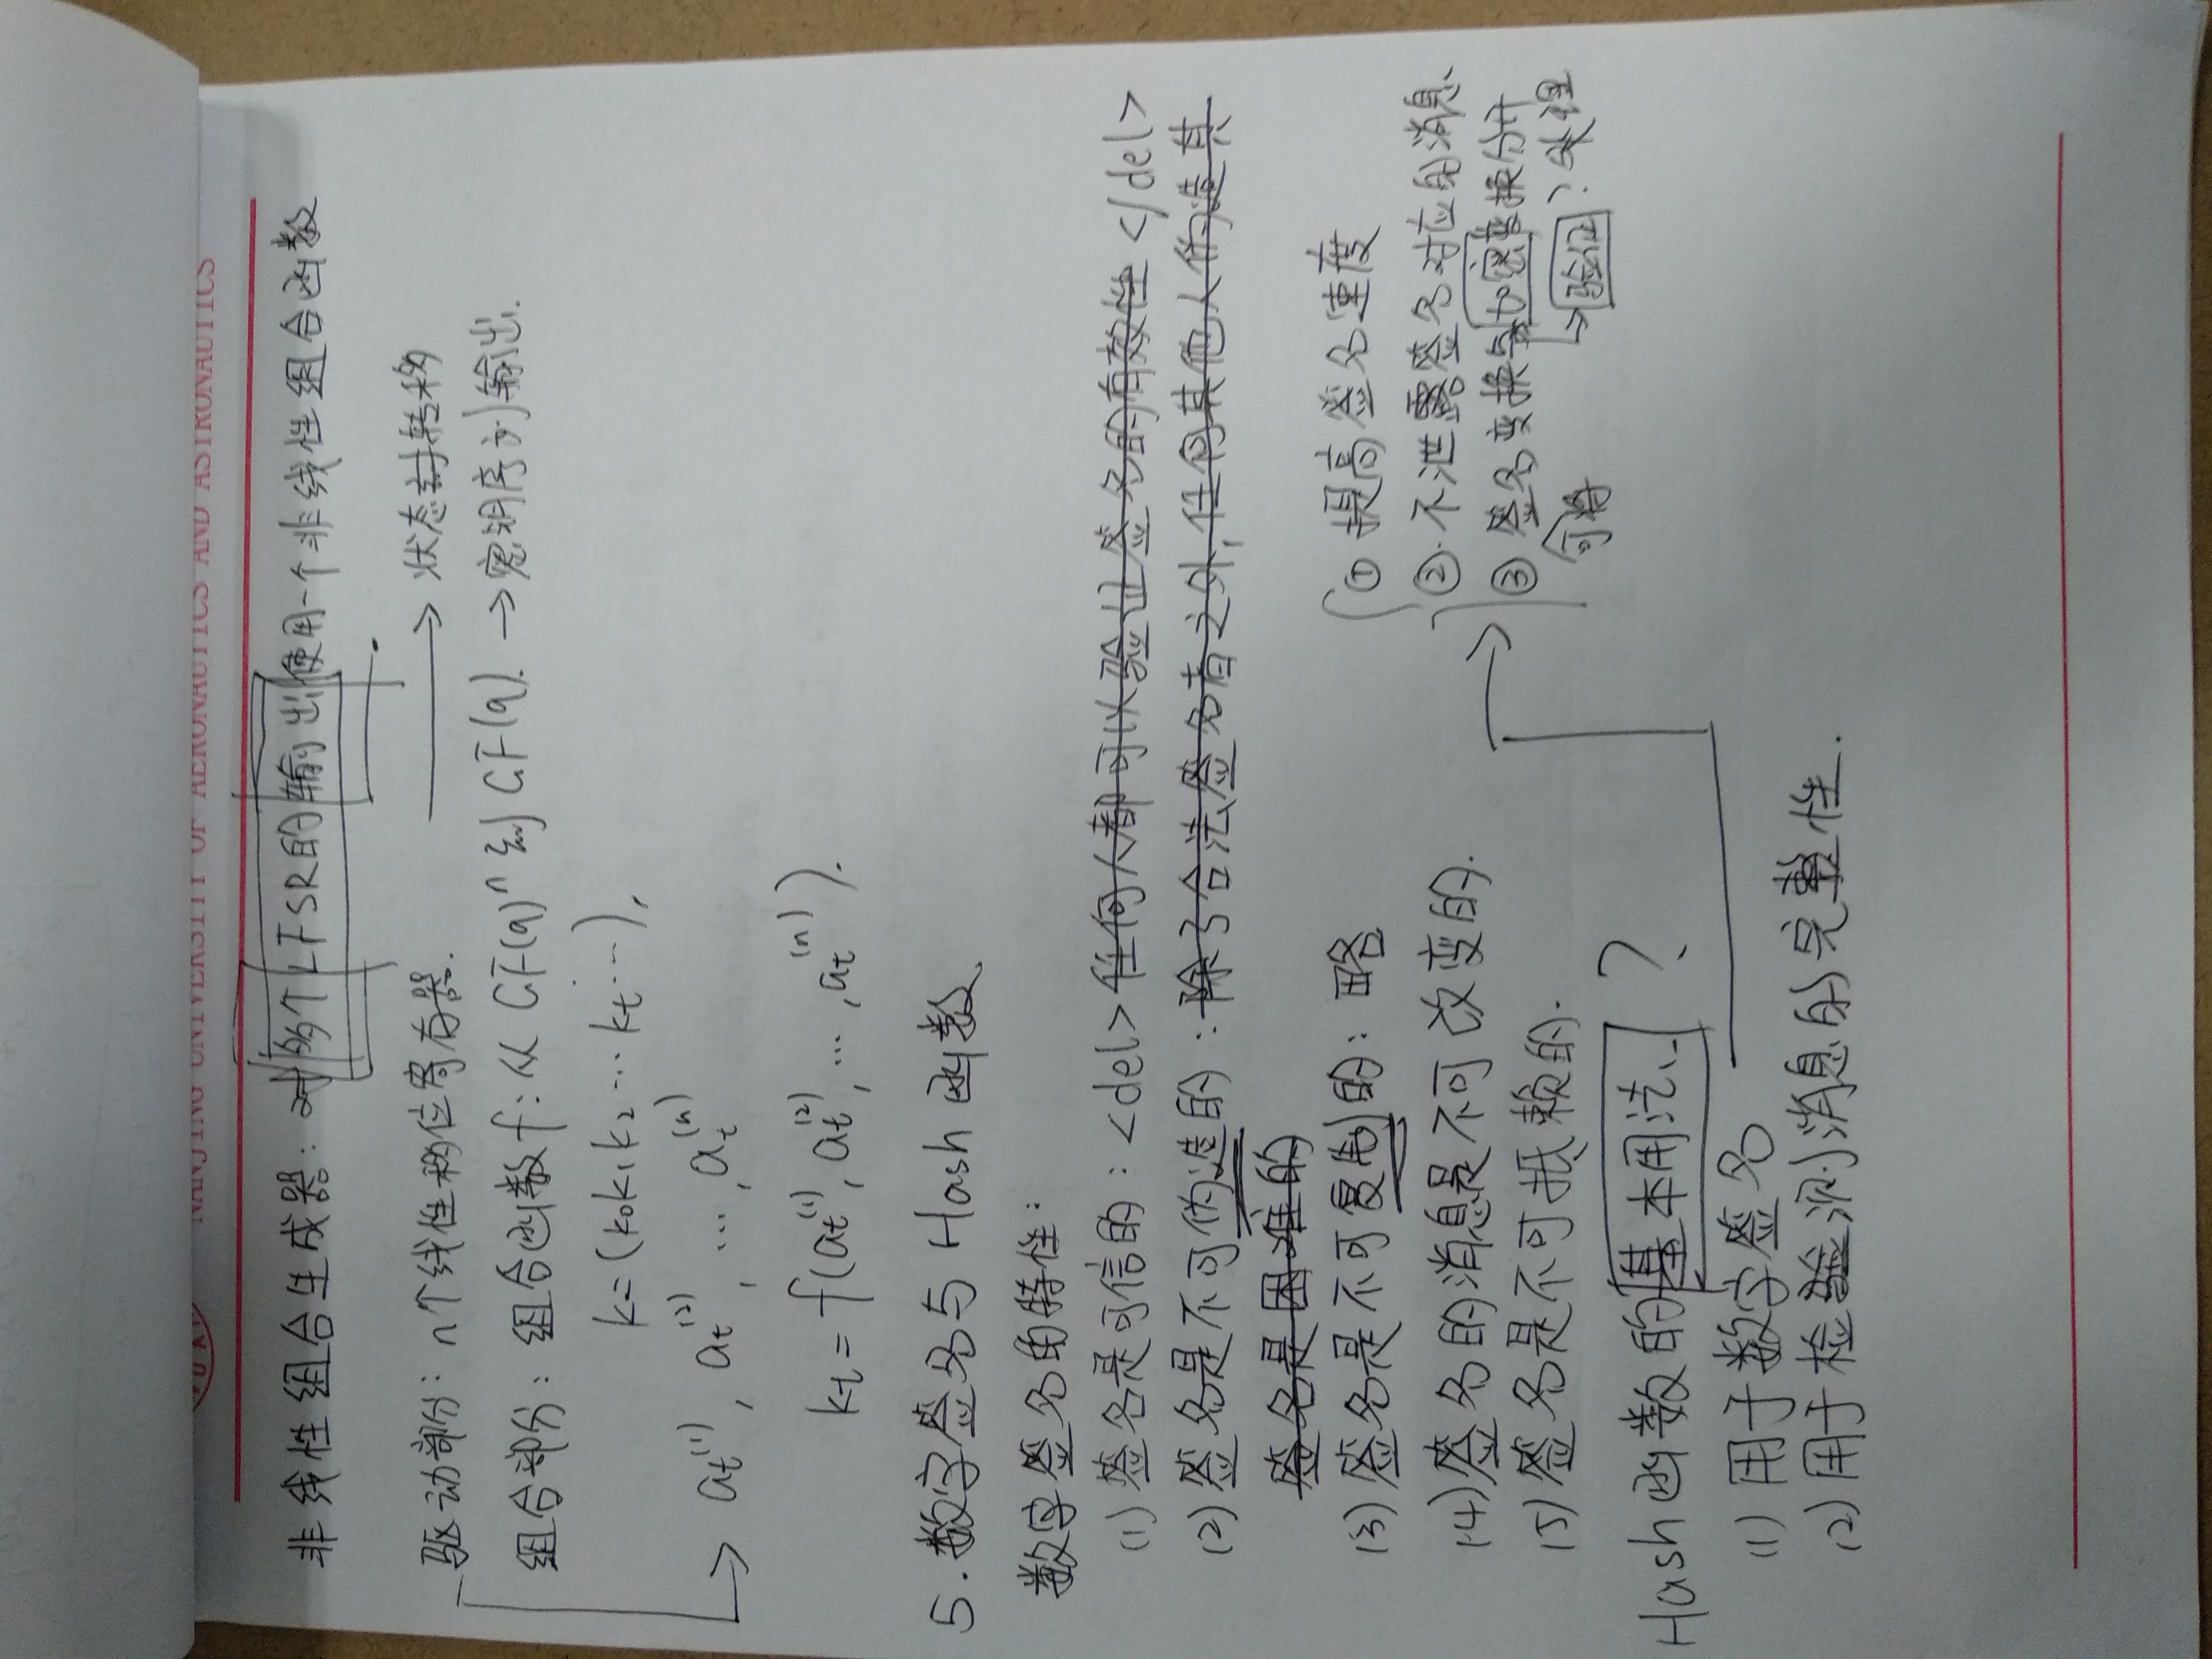 NANJING UNIVERSITY OF AERONAUTICS AND ASTRONAUTICS
非线性组合生成器: 对多个LFSR的输出使用一个非线性组合函数.
驱动部分: n个线性移位寄存器. → 状态转移
组合部分: 组合函数f: 从 GF(q)^n 到 GF(q). → 密钥序列输出.
k=(k₀k₁k₂…k_t…),
→ a_t^(1), a_t^(2), …, a_t^(n)
k_t = f(a_t^(1), a_t^(2), …, a_t^(n)).
5. 数字签名与 Hash 函数
数字签名的特性:
(1) 签名是可信的: <del>任何人都可以验证签名的有效性</del>
(2) 签名是不可伪造的: 除了合法签名者之外, 任何其他人伪造其
签名是困难的
(3) 签名是不可复制的: 略
(4) 签名的消息是不可改变的.
(5) 签名是不可抵赖的.
Hash函数的基本用法 ?
(1) 用于数字签名
→ ① 提高签名速度
②. 不泄露签名对应的消息
③ 签名变换与加密变换分开
可将 → 验证? 处理
(2) 用于检测消息的完整性.